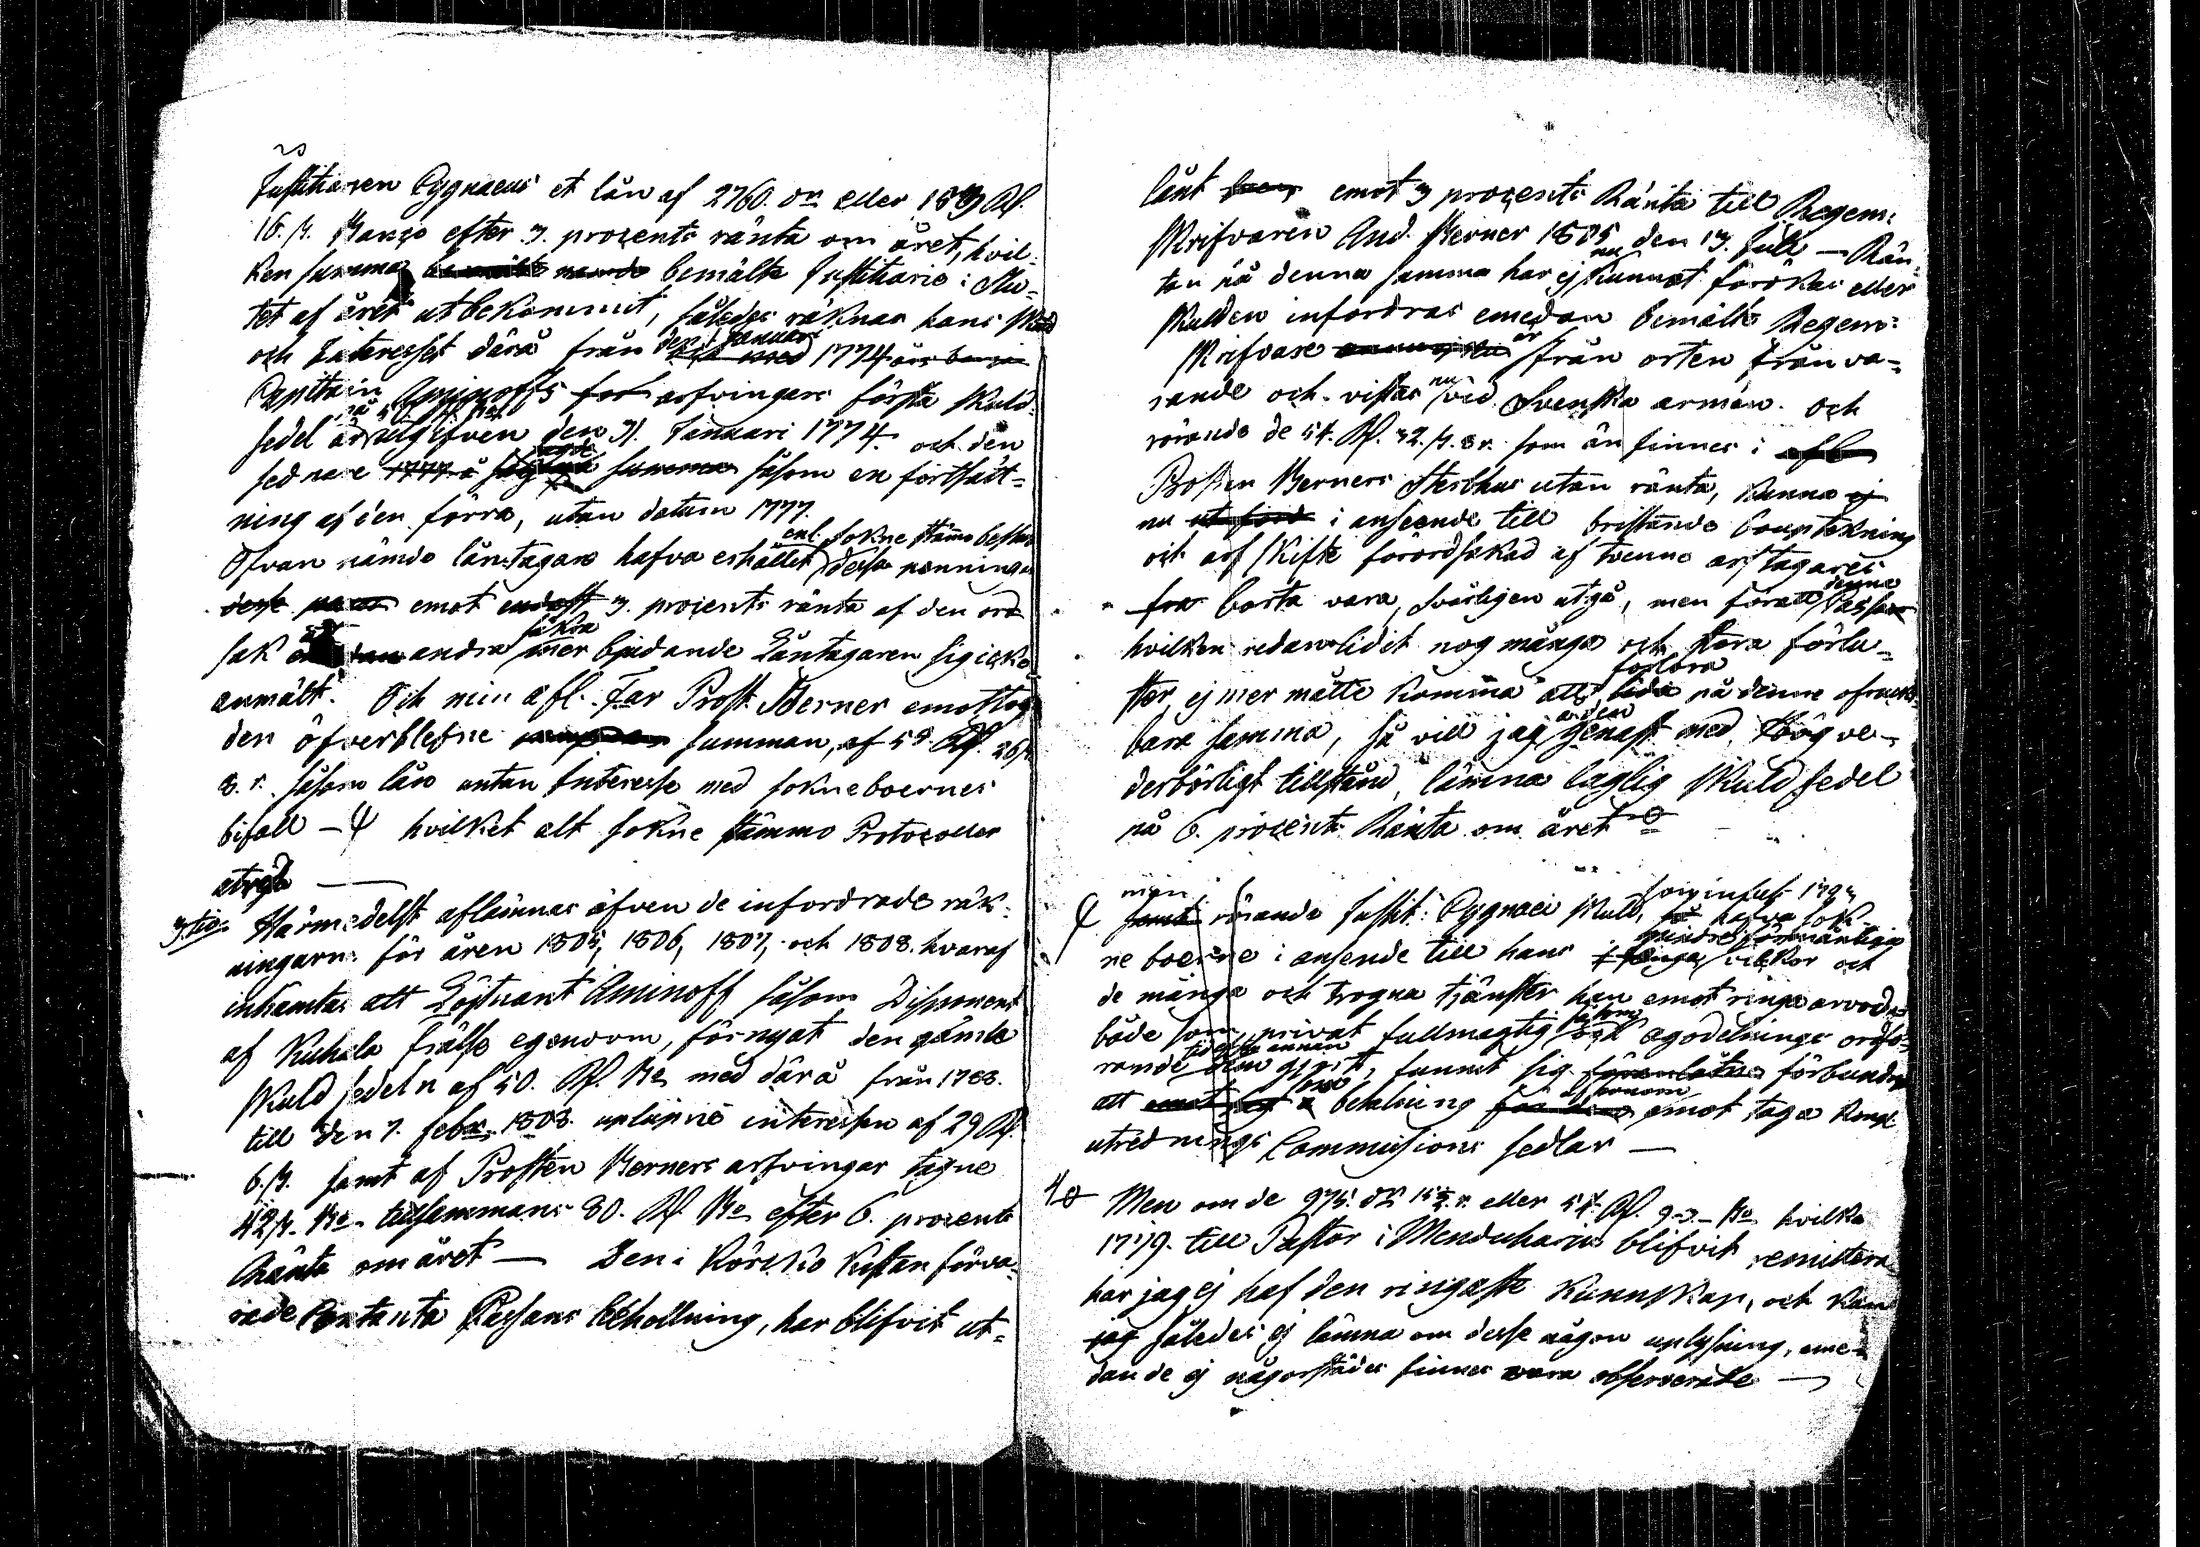 Justitiarien Cygnaeus et lån af 2760. dr eller 153 Rd.
16. s. Banco efter 3. procents ränta om året, hvil-
ken summa bemälte Justitiarie i Slu-
tet af året utbekommit, således räknas hans skuld
och Interesset därå från den 1 Januari 1774
Capitain Aminoffs arfvingars första skuld-
sedel är utgifven den 31. Januari 1774. och den
sednare såsom en fortsätt-
ning af den förra, utan datum 1777.
Ofvan nämde låntagare hafva erhållit enl. sokne stämo beslut desse penningar
emot 3. procents ränta af den or-
sak andra säkra mer bjudande Låntagaren sig icke
anmält. Och min afl. Far Prost Berner emottog
den öfverblefne summan, af 54 Rd. 26 s.
8. r. såsom lån utan Interesse med sokneboernes
bifall – hvilket alt sokne stämmo Protocoller
utvisa —
3tio. Härmedelst aflämnas äfven de infordrade räk-
ningarne för åren 1805, 1806, 1807, och 1808. hvaraf
inhämtas att Löjtnant Aminoff såsom Disponent
af Kuhala frälse egendom, förnyat den gamla
skuld sedeln af 50. Rd. Bco med därå från 1788.
till den 7. febr. 1808. uplupne interessen af 29 Rd.
6. s. samt af Prosten Berners arfvingar tagne
42 s. Bco. tillsammans 80. Rd. Bco efter 6. procents
Ränta om året — Den i Körckio Kistan förva-
rade Contanta Cassans Behållning, har blifvit ut-
lånt emot 3 procents Ränta till Regem:
skrifvaren And. Berner 1805 den 13. Juli — Rän-
tan på denna summa har ej nu kunnat förökas eller
skulden infordras emedan bemälte Regem:
skrifvare är från orten frånva-
rande och vistas nu vid Svenska arméen. och
rörande de 54. Rd. 32. s. 8 r. som än finnes i
Prosten Berners Sterbhus utan ränta, kunna
nu i anseende till bristande bouptekning
och arf skifte förordsakad af tvenne arftagares
borta vara, svårligen utgå, men föratt denna Cassa
hvilken redan lidit nog många och stora förlu-
ster, ej mer måtte komma att förlora på denne ofruckt-
bara summa, så vill jag å den genast med Högve-
derbörligt tillstånd, lämna laglig skuld sedel
på 6. procents Ränta om året
men rörande Justit: Cygnaei skuld, hafva sok-
ne boerne i ansende till hans mindre förmånliga vilkor och
de många och trogna tjänster han emot ringa arvode
både som privat fullmagtig såsom ock agodelnings ordfö-
rande tid efter annan gjort, funnit sig förbundne
att betalning af honom emot taga Rengl.
utrednings Commissions sedlar —
4o Men om de 975. dr 15 3/4. r. eller 54. Rd. 9 - 3 - Bco hvilka
1779. till Pastor i Menduharju blifvit remitterade
har jag ej haf den ringaste kunnskap, och kan
jag således ej lämna om desse någon uplysning, eme-
dan de ej någorstädes finnes vara observerade —